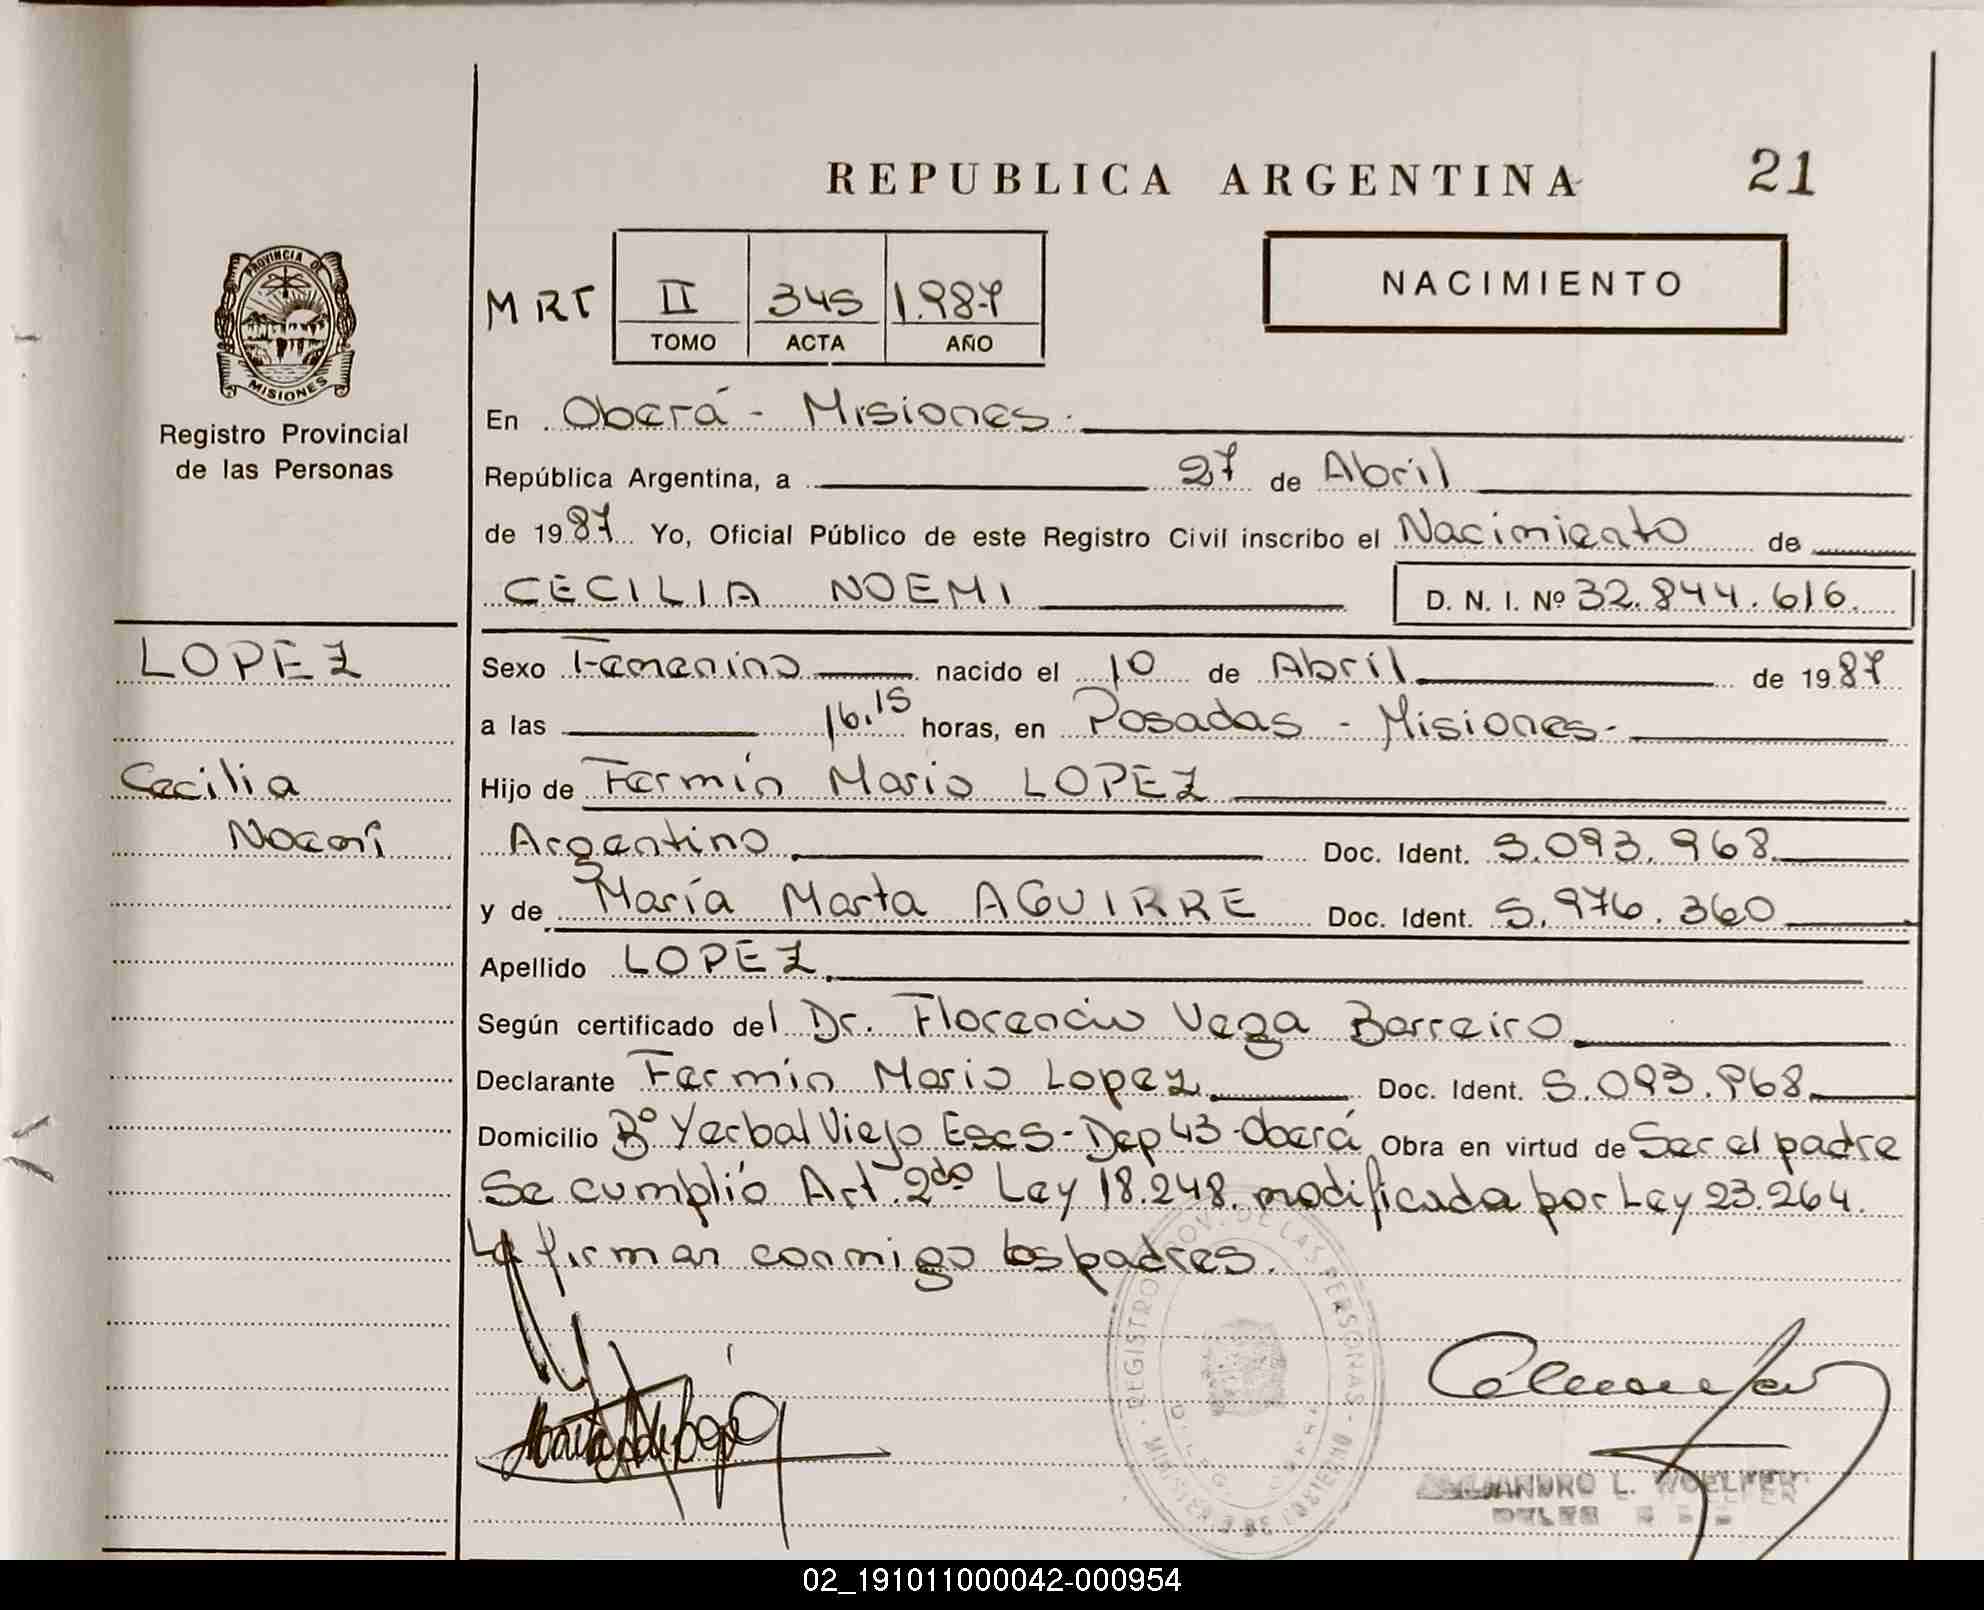 REPUBLICA ARGENTINA 21
PROVINCIA DE
MISIONES
Registro Provincial
de las Personas
MRT II 345 1.987
TOMO ACTA AÑO
NACIMIENTO
En Oberá - Misiones.
República Argentina, a 27 de Abril
de 1987 Yo, Oficial Público de este Registro Civil inscribo el Nacimiento de
CECILIA NOEMI D. N. I. Nº 32.844.616.
LOPEZ
Cecilia
Noemí
Sexo Femenino nacido el 10 de Abril de 1987
a las 16.15 horas, en Posadas - Misiones-
Hijo de Fermín Mario LOPEZ
Argentino Doc. Ident. 5.093.968
y de María Marta AGUIRRE Doc. Ident. 5.976.360
Apellido LOPEZ
Según certificado del Dr. Florencio Vega Barreiro
Declarante Fermín Mario Lopez Doc. Ident. 5.093.968
Domicilio Bº Yerbal Viejo Esc 5 - Dep 43 - Oberá Obra en virtud de Ser el padre
Se cumplió Art. 2do Ley 18.248. modificada por Ley 23.264.
firman conmigo los padres.
REGISTRO PROV. DE LAS PERSONAS
MINISTERIO DE GOBIERNO
02_191011000042-000954